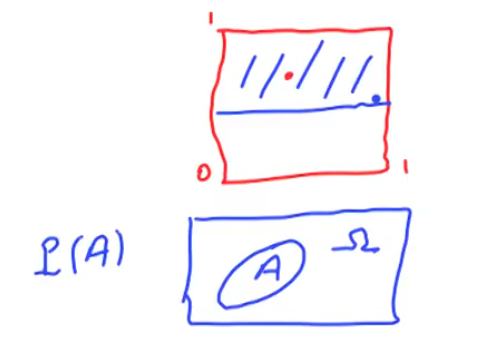 1
0 1
P(A) A Ω